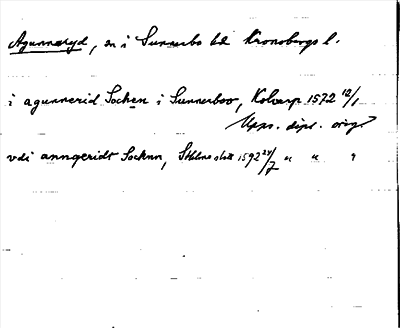 Agunnaryd, sn i Sunnerbo hd Kronobergs l.
i agunnerid Sochen i Sunnerboo, 1572 12/1
Upps. dipl. orig.
vdi anngeridt Socknn, 1592 24/7 " " "